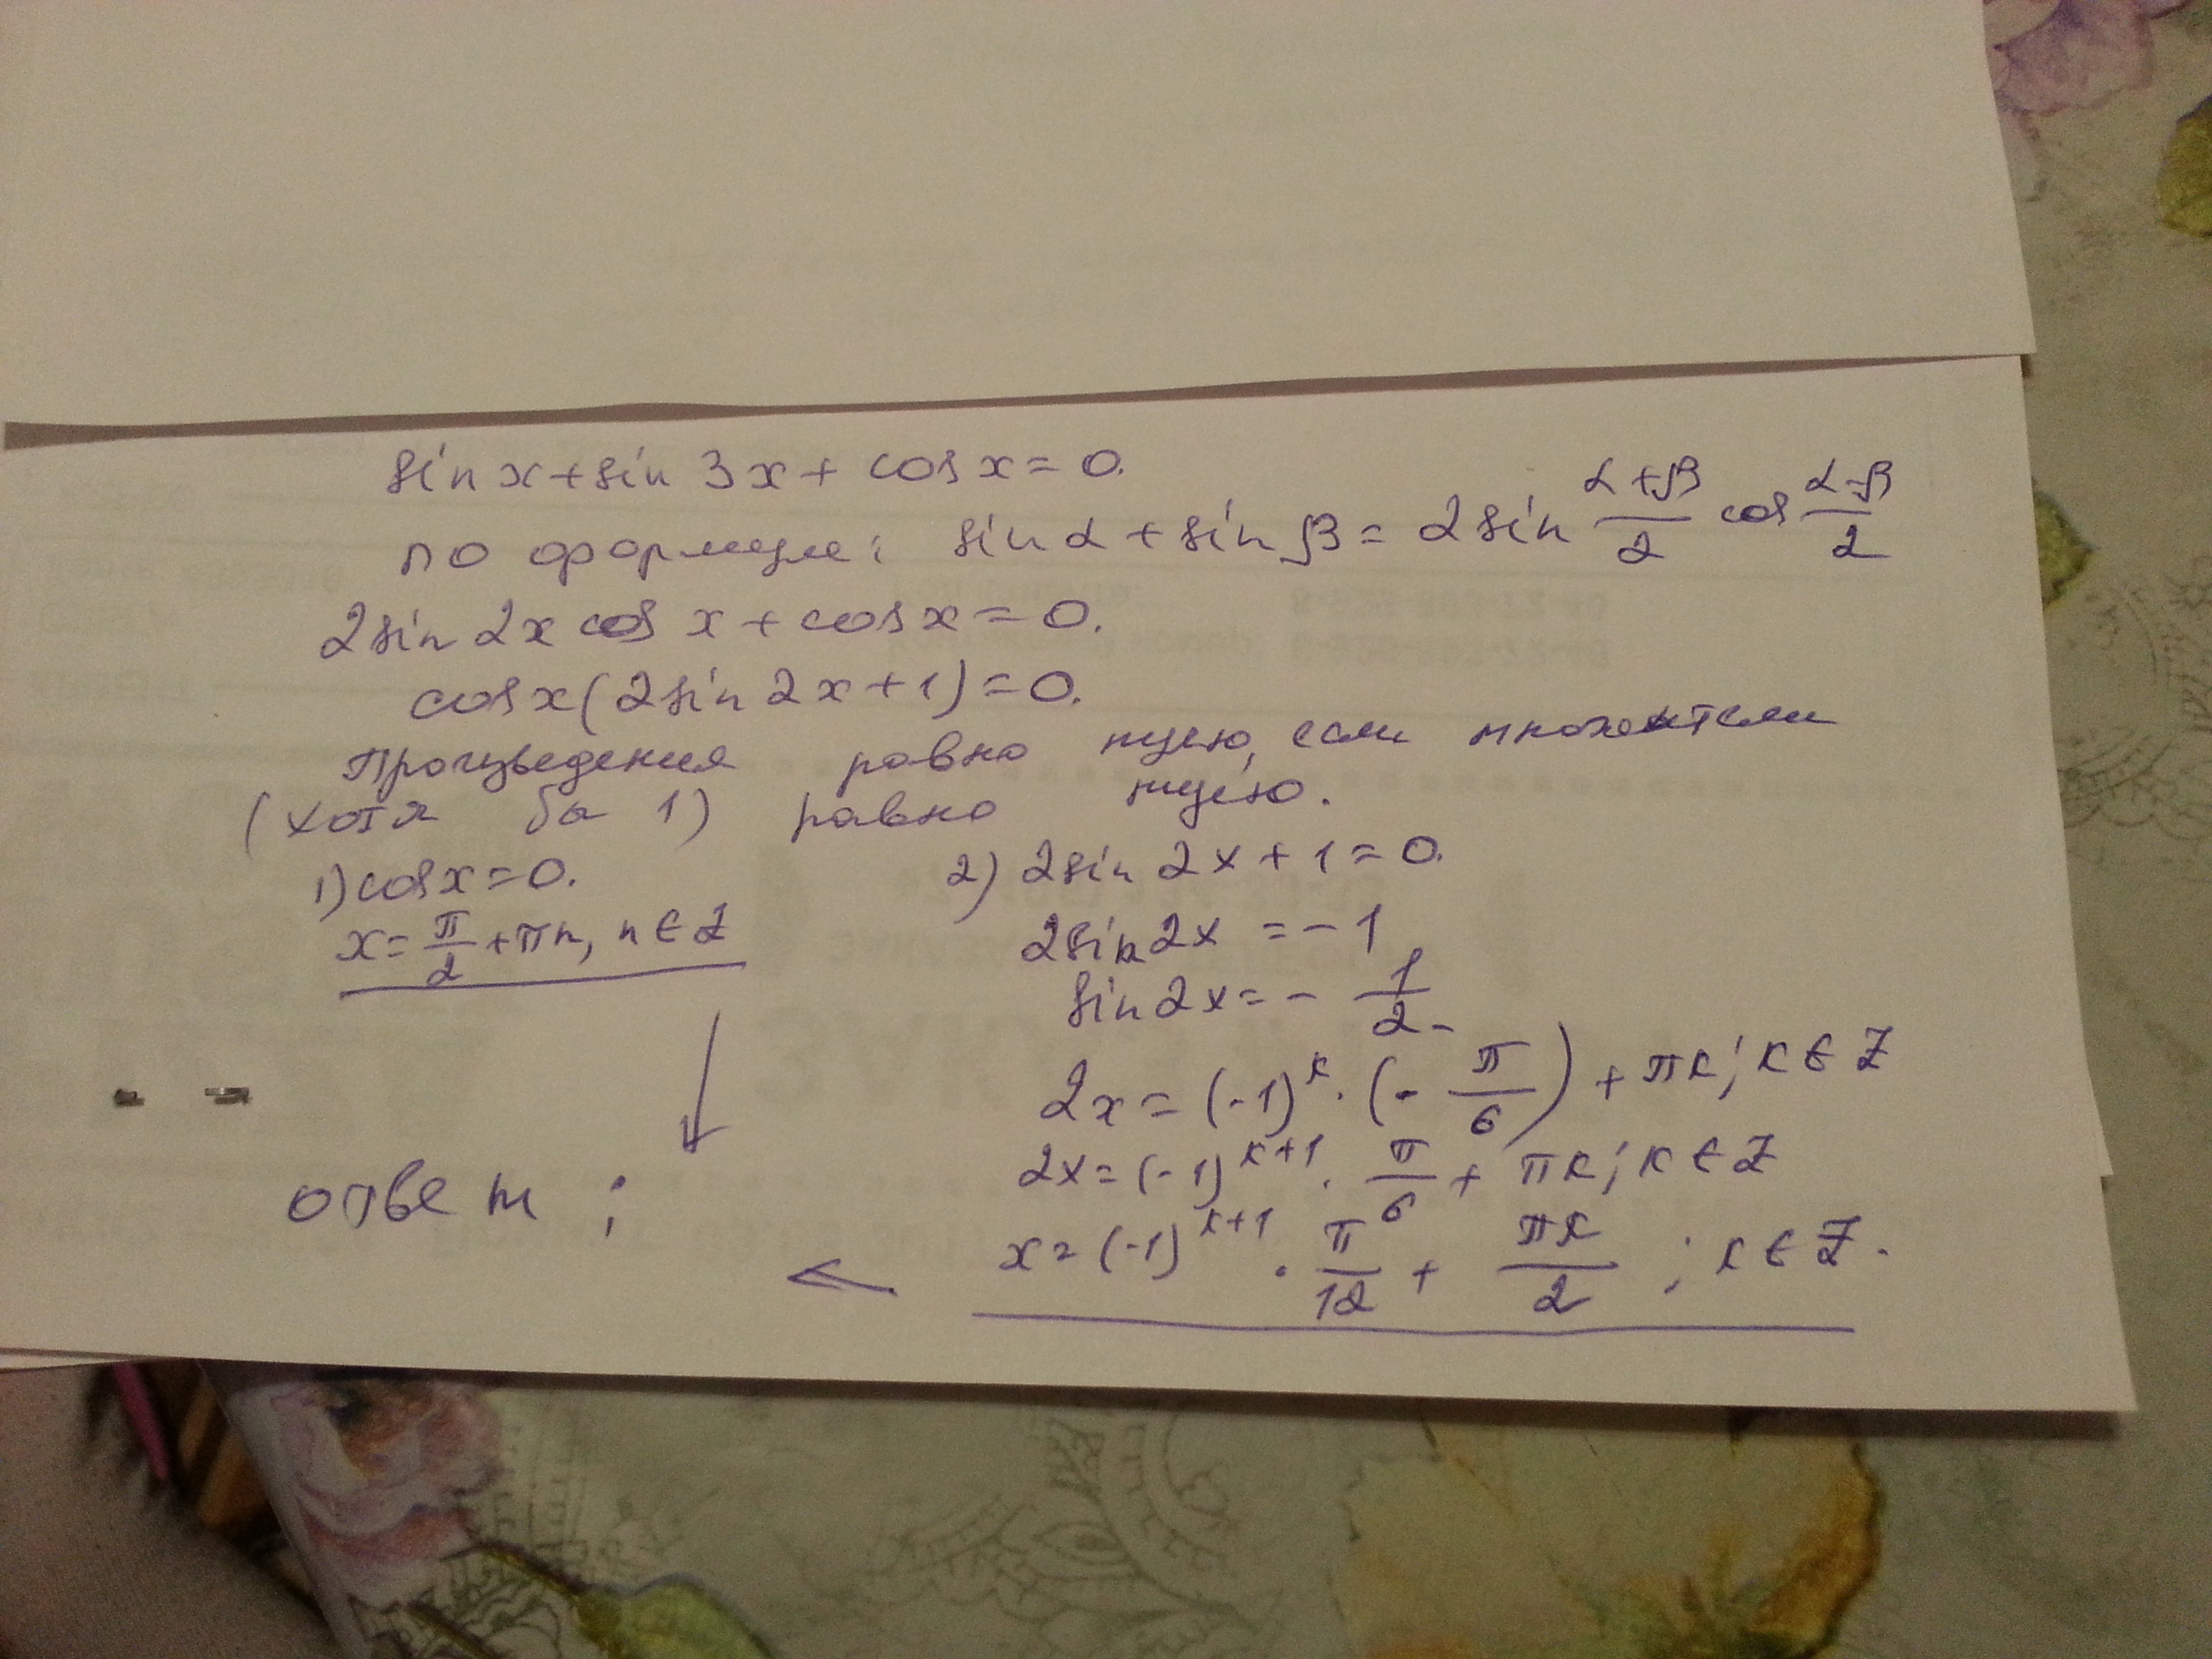 sin x + sin 3x + cos x = 0.
по формуле: sin α + sin β = 2 sin (α+β)/2 cos (α-β)/2
2 sin 2x cos x + cos x = 0.
cos x (2 sin 2x + 1) = 0.
Произведения равно нулю, если множетели
(хотя бы 1) равно нулю.
1) cos x = 0.
x = π/2 + πn, n ∈ Z
2) 2 sin 2x + 1 = 0.
2 sin 2x = -1
sin 2x = - 1/2.
2x = (-1)^k · (- π/6) + πk; k ∈ Z
2x = (-1)^(k+1) · π/6 + πk; k ∈ Z
x = (-1)^(k+1) · π/12 + πk/2 ; k ∈ Z.
ответ :